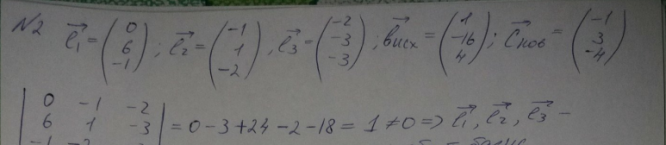 N2 l₁ = (0 6 -1) ; l₂ = (-1 1 -2) , l₃ = (-2 -3 -3) ; bисх = (1 -16 4) ; Cнов = (-1 3 -4)
| 0 -1 -2 |
| 6 1 -3 | = 0-3+24-2-18 = 1 ≠ 0 => l₁, l₂, l₃ -
-1 -2